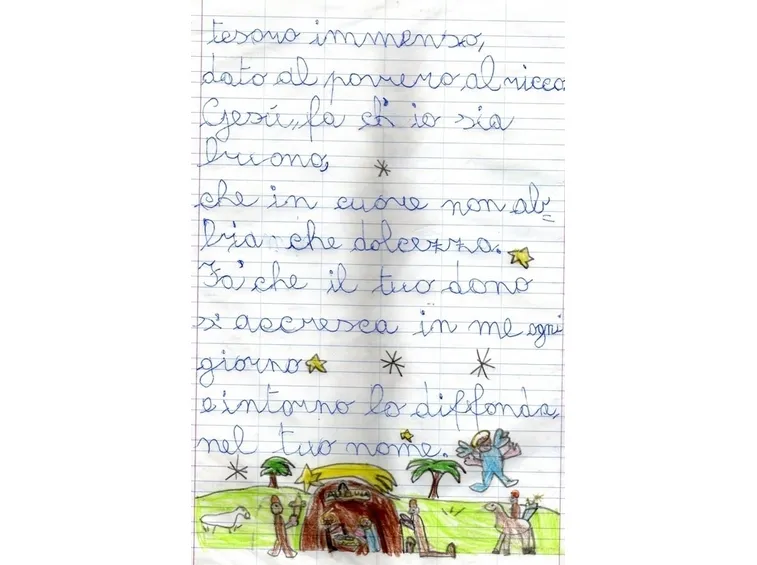 tesoro immenso,
dato al povero al ricco
Gesú, fa ch' io sia
buono,
che in cuore non ab=
bia che dolcezza.
Fa' che il tuo dono
s' accresca in me ogni
giorno
e intorno lo diffonda,
nel tuo nome.